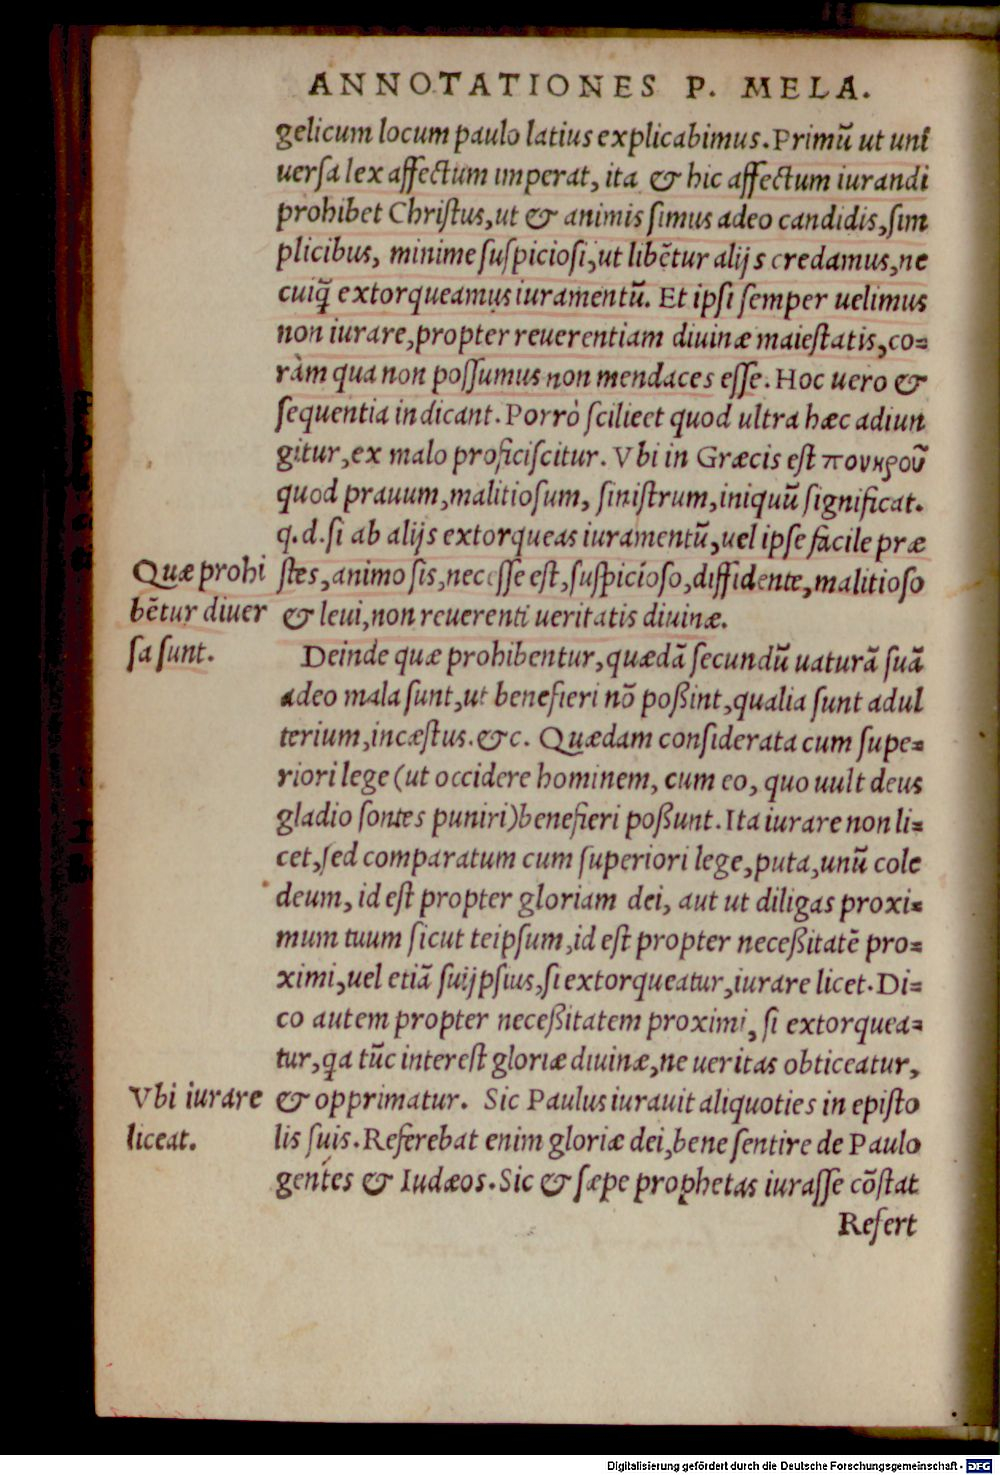 ANNOTATIONES P. MELA.
gelicum locum paulo latius explicabimus. Primũ ut uni
uersa lex affectum imperat, ita & hic affectum iurandi
prohibet Christus, ut & animis simus adeo candidis, sim
plicibus, minime suspiciosi, ut libẽtur alijs credamus, ne
cuiq̃ extorqueamus iuramentũ. Et ipsi semper uelimus
non iurare, propter reuerentiam diuinæ maiestatis, co=
ràm qua non possumus non mendaces esse. Hoc uero &
sequentia indicant. Porrò scilicet quod ultra hæc adiun
gitur, ex malo proficiscitur. Vbi in Græcis est πονηροῦ
quod prauum, malitiosum, sinistrum, iniquũ significat.
q. d. si ab alijs extorqueas iuramentũ, uel ipse facile præ
Quæ prohi
bẽtur diuer
sa sunt.
stes, animo sis, necesse est, suspicioso, diffidente, malitioso
& leui, non reuerenti ueritatis diuinæ.
Deinde quæ prohibentur, quædã secundũ uaturã suã
adeo mala sunt, ut benefieri nõ poßint, qualia sunt adul
terium, incæstus. &c. Quædam considerata cum supe=
riori lege (ut occidere hominem, cum eo, quo uult deus
gladio sontes puniri) benefieri poßunt. Ita iurare non li=
cet, sed comparatum cum superiori lege, puta, unũ cole
deum, id est propter gloriam dei, aut ut diligas proxi=
mum tuum sicut teipsum, id est propter neceßitatẽ pro=
ximi, uel etiã suijpsius, si extorqueatur, iurare licet. Di=
co autem propter neceßitatem proximi, si extorquea=
tur, qa tũc interest gloriæ diuinæ, ne ueritas obticeatur,
Vbi iurare
liceat.
& opprimatur. Sic Paulus iurauit aliquoties in episto
lis suis. Referebat enim gloriæ dei, bene sentire de Paulo
gentes & Iudæos. Sic & sæpe prophetas iurasse cõstat
Refert
Digitalisierung gefördert durch die Deutsche Forschungsgemeinschaft - DFG